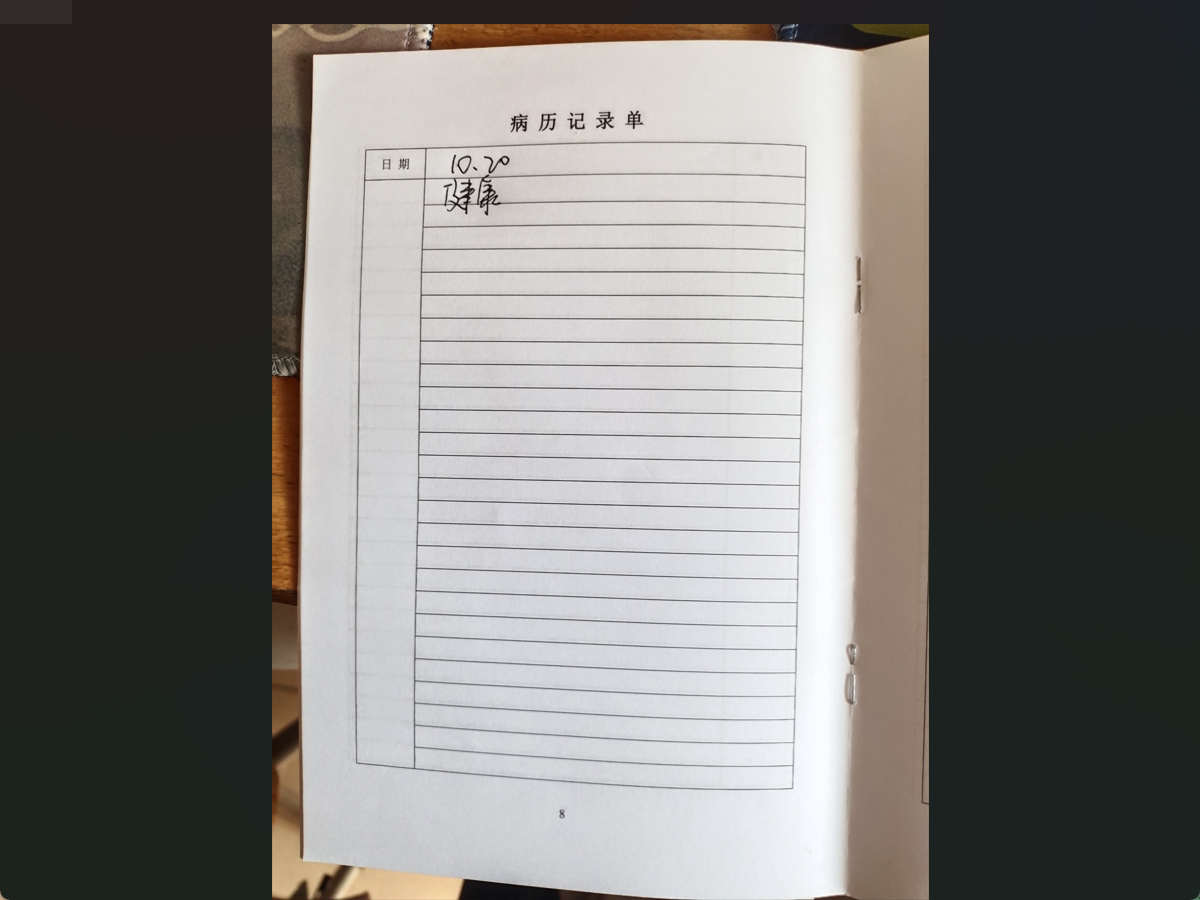 病历记录单
日期 10.20
健康
8